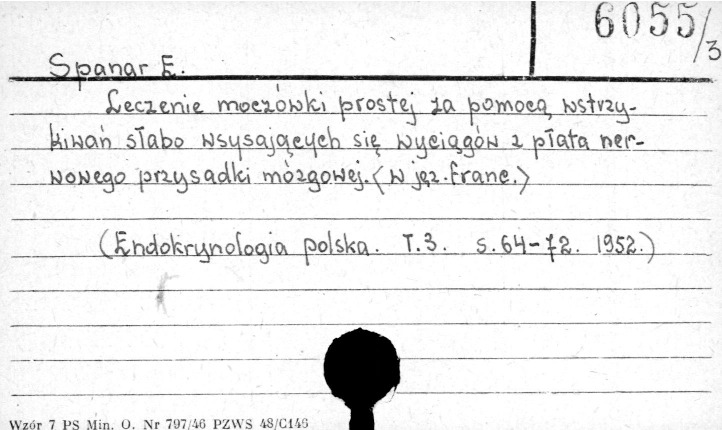 6055/3
Spanar E.
Leczenie moczówki prostej za pomocą wstrzy-
kiwań słabo wsysających się wyciągów z płata ner-
wowego przysadki mózgowej. <w jęz. franc.>
(Endokrynologia polska. T.3. s.64-72. 1952.)
Wzór 7 PS Min. O. Nr 797/46 PZWS 48/C146